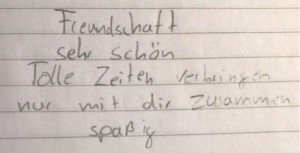 Freundschaft
sehr schön
Tolle Zeiten verbringen
nur mit dir zusammen
spaßig